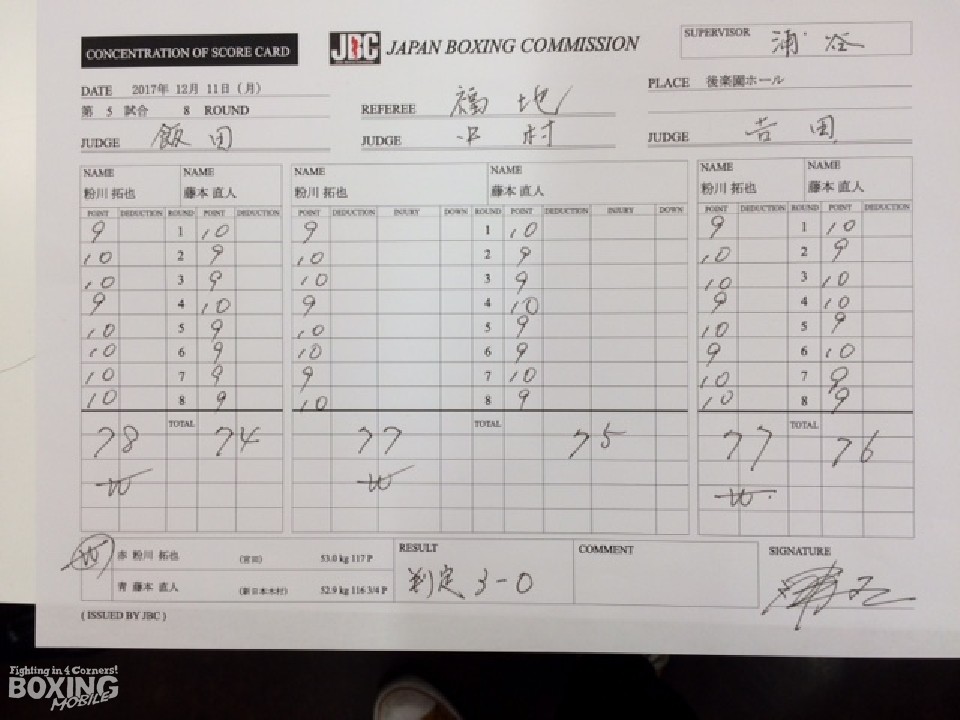 CONCENTRATION OF SCORE CARD
JBC JAPAN BOXING COMMISSION
SUPERVISOR 浦谷
DATE 2017年 12月 11日 (月)
PLACE 後楽園ホール
第 5 試合 8 ROUND
REFEREE 福地
JUDGE 飯田
JUDGE 中村
JUDGE 吉田
NAME NAME NAME NAME NAME NAME
粉川 拓也 藤本 直人 粉川 拓也 藤本 直人 粉川 拓也 藤本 直人
POINT DEDUCTION ROUND POINT DEDUCTION POINT DEDUCTION INJURY DOWN ROUND POINT DEDUCTION INJURY DOWN POINT DEDUCTION ROUND POINT DEDUCTION
9 1 10 9 1 10 9 1 10
10 2 9 10 2 9 10 2 9
10 3 9 10 3 9 10 3 10
9 4 10 9 4 10 9 4 10
10 5 9 10 5 9 10 5 9
10 6 9 10 6 9 9 6 10
10 7 9 9 7 10 10 7 9
10 8 9 10 8 9 10 8 9
TOTAL TOTAL TOTAL
78 74 77 75 77 76
W W W
W 赤 粉川 拓也 (宮田) 53.0 kg 117 P
青 藤本 直人 (新日本木村) 52.9 kg 116 3/4 P
RESULT
判定 3-0
COMMENT
SIGNATURE
( ISSUED BY JBC )
Fighting in 4 Corners!
BOXING
MOBILE